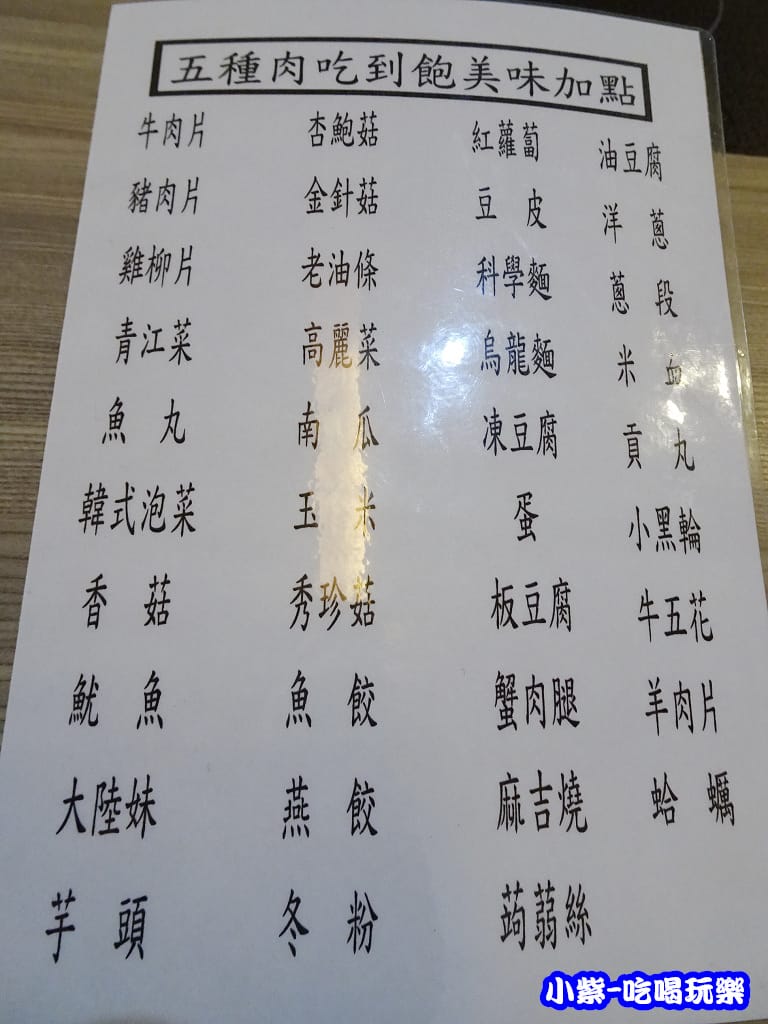 五種肉吃到飽美味加點
牛肉片
豬肉片
雞柳片
青江菜
魚 丸
韓式泡菜
香 菇
魷 魚
大陸妹
芋 頭
杏鮑菇
金針菇
老油條
高麗菜
南 瓜
玉 米
秀珍菇
魚 餃
燕 餃
冬 粉
紅蘿蔔
豆 皮
科學麵
烏龍麵
凍豆腐
蛋
板豆腐
蟹肉腿
麻吉燒
蒟蒻絲
油豆腐
洋 蔥
蔥 段
米 血
貢 丸
小黑輪
牛五花
羊肉片
蛤 蠣
小紫-吃喝玩樂